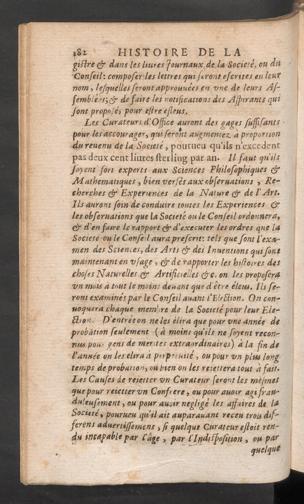 182 HISTOIRE DE LA
gistre & dans les liures Journaux de la Societé, ou du
Conseil: composer les lettres qui seront escrites en leur
nom, lesquelles seront approuuées en vne de leurs As-
semblées; & de faire les notifications des Aspirants qui
sont proposez pour estre esleus.
Les Curateurs d'Office auront des gages suffisants
pour les encourager, qui seront augmentez à proportion
du reuenu de la Societé, pourueu qu'ils n'excedent
pas deux cent liures sterling par an. Il faut qu'ils
soyent fors experts aux Sciences Philosophiques &
Mathematiques, bien versés aux obseruations, Re-
cherches & Experiences de la Nature & de l'Art.
Ils auront soin de conduire toutes les Experiences &
les obseruations que la Societé ou le Conseil ordonnera,
& d'en faire le rapport & d'executer les ordres que la
Societé ou le Conseil aura prescrit: tels que sont l'exa-
men des Sciences, des Arts & des Inuentions qui sont
maintenant en vsage, & de rapporter les histoires des
choses Naturelles & Artificielles &c. on les proposera
vn mois à tout le moins deuant que d'être éleus. Ils se-
ront examinés par le Conseil auant l'Election. On con-
uoquera chaque membre de la Societé pour leur Ele-
ction. D'entrée on ne les élira que pour vne année de
probation seulement (à moins qu'ils ne soyent recon-
nus pour gens de merites extraordinaires) à la fin de
l'année on les élira à perpetuité, ou pour vn plus long
temps de probation, ou bien on les reiettera tout à fait.
Les Causes de reietter vn Curateur seront les mesmes
que pour reietter vn Confrere, ou pour auoir agi frau-
duleusement, ou pour auoir negligé les affaires de la
Societé, pourueu qu'il ait auparauant receu trois dif-
ferens aduertissemens, si quelque Curateur estoit ren-
du incapable par l'âge, par l'Indisposition, ou par
quelque